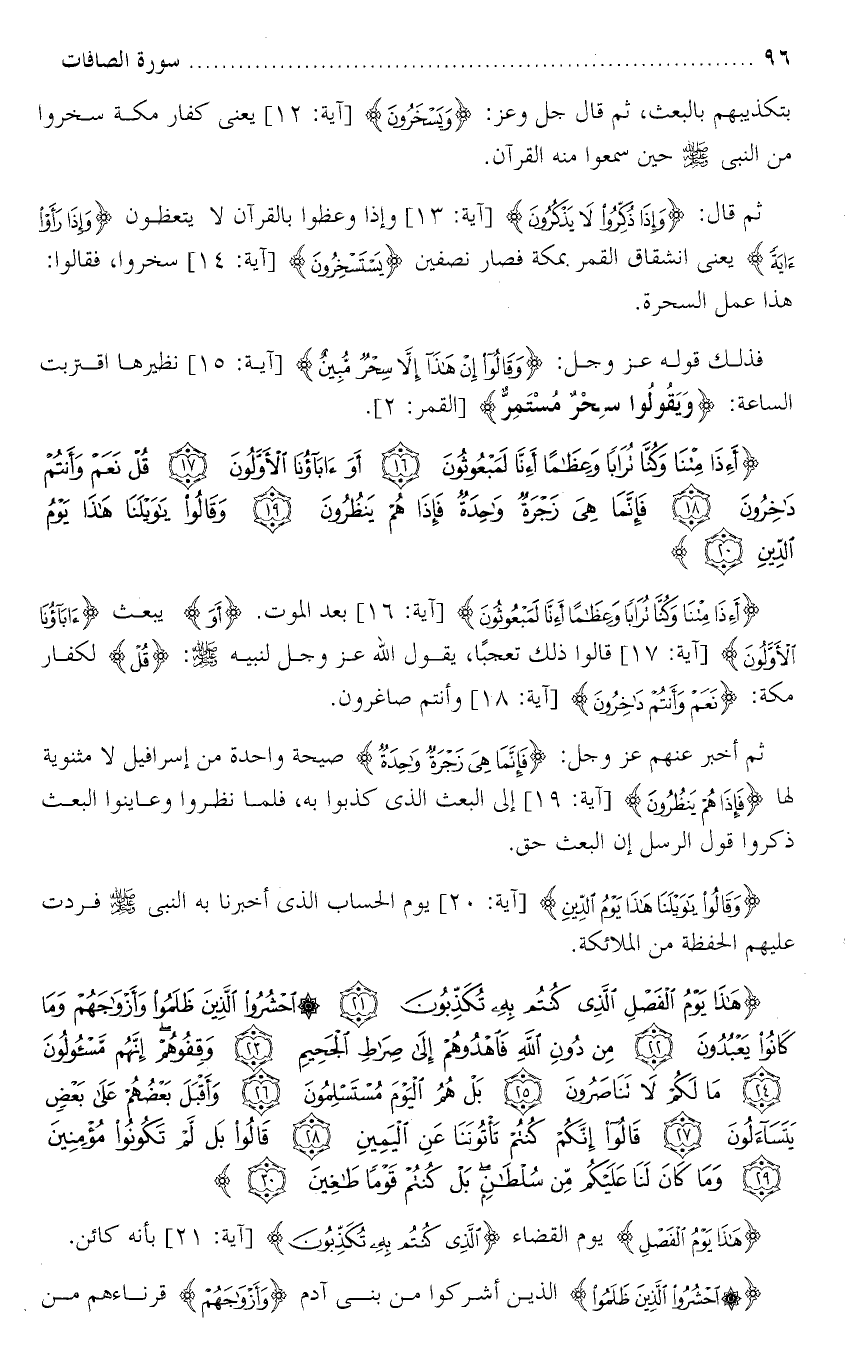 ٩٦ ............................................................... سورة الصافات
بتكذيبهم بالبعث، ثم قال جل وعز: ﴿وَيَسْخَرُونَ﴾ [آية: ١٢] يعنى كفار مكة سخروا
من النبى ﷺ حين سمعوا منه القرآن.
ثم قال: ﴿وَإِذَا ذُكِّرُوا۟ لَا يَذْكُرُونَ﴾ [آية: ١٣] وإذا وعظوا بالقرآن لا يتعظون ﴿وَإِذَا رَأَوْا۟
ءَايَةً﴾ يعنى انشقاق القمر بمكة فصار نصفين ﴿يَسْتَسْخِرُونَ﴾ [آية: ١٤] سخروا، فقالوا:
هذا عمل السحرة.
فذلك قوله عز وجل: ﴿وَقَالُوٓا۟ إِنْ هَٰذَآ إِلَّا سِحْرٌ مُّبِينٌ﴾ [آية: ١٥] نظيرها اقتربت
الساعة: ﴿وَيَقُولُوا سِحْرٌ مُسْتَمِرٌّ﴾ [القمر: ٢].
﴿أَءِذَا مِتْنَا وَكُنَّا تُرَابًا وَعِظَٰمًا أَءِنَّا لَمَبْعُوثُونَ ١٦ أَوَ ءَابَآؤُنَا ٱلْأَوَّلُونَ ١٧ قُلْ نَعَمْ وَأَنتُمْ
دَٰخِرُونَ ١٨ فَإِنَّمَا هِىَ زَجْرَةٌ وَٰحِدَةٌ فَإِذَا هُمْ يَنظُرُونَ ١٩ وَقَالُوا۟ يَٰوَيْلَنَا هَٰذَا يَوْمُ
ٱلدِّينِ ٢٠﴾
﴿أَءِذَا مِتْنَا وَكُنَّا تُرَابًا وَعِظَٰمًا أَءِنَّا لَمَبْعُوثُونَ﴾ [آية: ١٦] بعد الموت. ﴿أَوَ﴾ يبعث ﴿ءَابَآؤُنَا
ٱلْأَوَّلُونَ﴾ [آية: ١٧] قالوا ذلك تعجبًا، يقول الله عز وجل لنبيه ﷺ: ﴿قُلْ﴾ لكفار
مكة: ﴿نَعَمْ وَأَنتُمْ دَٰخِرُونَ﴾ [آية: ١٨] وأنتم صاغرون.
ثم أخبر عنهم عز وجل: ﴿فَإِنَّمَا هِىَ زَجْرَةٌ وَٰحِدَةٌ﴾ صيحة واحدة من إسرافيل لا مثنوية
لها ﴿فَإِذَا هُمْ يَنظُرُونَ﴾ [آية: ١٩] إلى البعث الذى كذبوا به، فلما نظروا وعاينوا البعث
ذكروا قول الرسل إن البعث حق.
﴿وَقَالُوا۟ يَٰوَيْلَنَا هَٰذَا يَوْمُ ٱلدِّينِ﴾ [آية: ٢٠] يوم الحساب الذى أخبرنا به النبى ﷺ فردت
عليهم الحفظة من الملائكة.
﴿هَٰذَا يَوْمُ ٱلْفَصْلِ ٱلَّذِى كُنتُم بِهِۦ تُكَذِّبُونَ ٢١ ۞ ٱحْشُرُوا۟ ٱلَّذِينَ ظَلَمُوا۟ وَأَزْوَٰجَهُمْ وَمَا
كَانُوا۟ يَعْبُدُونَ ٢٢ مِن دُونِ ٱللَّهِ فَٱهْدُوهُمْ إِلَىٰ صِرَٰطِ ٱلْجَحِيمِ ٢٣ وَقِفُوهُمْ ۖ إِنَّهُم مَّسْـُٔولُونَ
٢٤ مَا لَكُمْ لَا تَنَاصَرُونَ ٢٥ بَلْ هُمُ ٱلْيَوْمَ مُسْتَسْلِمُونَ ٢٦ وَأَقْبَلَ بَعْضُهُمْ عَلَىٰ بَعْضٍ
يَتَسَآءَلُونَ ٢٧ قَالُوٓا۟ إِنَّكُمْ كُنتُمْ تَأْتُونَنَا عَنِ ٱلْيَمِينِ ٢٨ قَالُوا۟ بَل لَّمْ تَكُونُوا۟ مُؤْمِنِينَ
٢٩ وَمَا كَانَ لَنَا عَلَيْكُم مِّن سُلْطَٰنٍ ۖ بَلْ كُنتُمْ قَوْمًا طَٰغِينَ ٣٠﴾
﴿هَٰذَا يَوْمُ ٱلْفَصْلِ﴾ يوم القضاء ﴿ٱلَّذِى كُنتُم بِهِۦ تُكَذِّبُونَ﴾ [آية: ٢١] بأنه كائن.
﴿۞ ٱحْشُرُوا۟ ٱلَّذِينَ ظَلَمُوا۟﴾ الذين أشركوا من بنى آدم ﴿وَأَزْوَٰجَهُمْ﴾ قرناءهم من